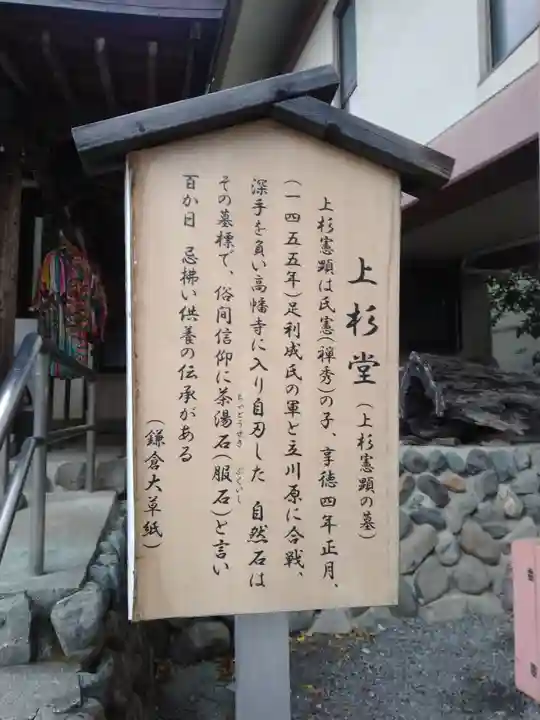 上杉堂（上杉憲顕の墓）
上杉憲顕は氏憲（禅秀）の子、享徳四年正月、
（一四五五年）足利成氏の軍と立川原に合戦、
深手を負い高幡寺に入り自刃した 自然石は
その墓標で、俗間信仰に茶湯石（服石）と言い
ちゃとうせき
ぶくいし
百か日 忌拂い供養の伝承がある
（鎌倉大草紙）